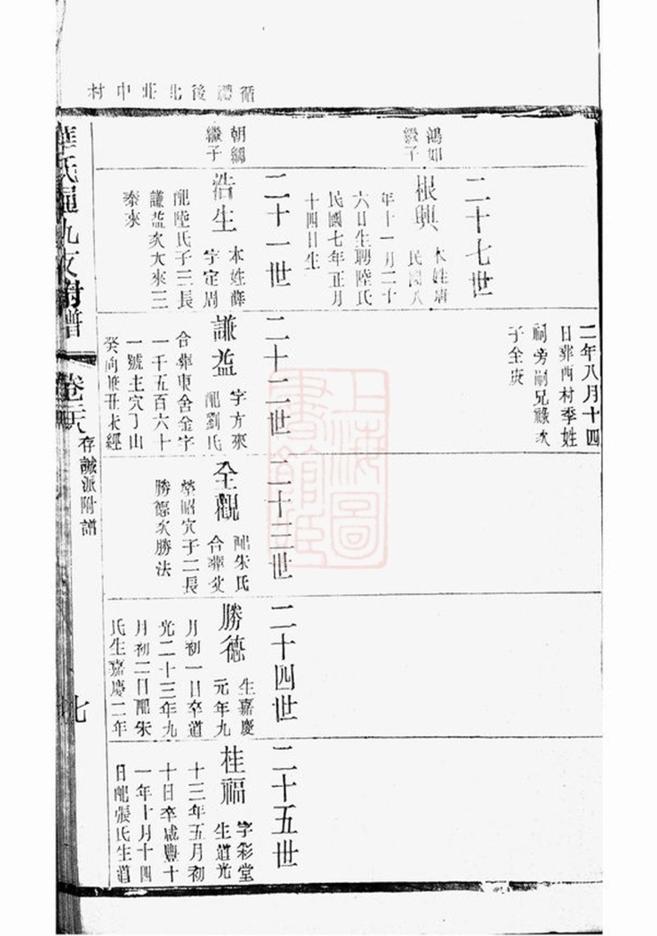 循禮後北莊中村
二年八月十四
日葬西村季姓
祠旁嗣兄祿次
子全庚
二十七世
鴻如
繼子
根興
本姓唐
民國八
年十一月二十
六日生聘陸氏
民國七年正月
十四日生
二十一世
朝綱
繼子
浩生
本姓薛
字定周
配陸氏子三長
謙益次大來三
泰來
二十二世
謙益
字方來
配劉氏
合葬東舍金字
一千五百六十
一號主穴丁山
癸向兼丑未經
二十三世
全觀
配朱氏
合葬父
塋昭穴子二長
勝德次勝法
二十四世
勝德
生嘉慶
元年九
月初一日卒道
光二十三年九
月初二日配朱
氏生嘉慶二年
二十五世
桂福
字彩堂
生道光
十三年五月初
十日卒咸豐十
一年十月十四
日配張氏生道
華氏通九支附譜
存誠派附譜
上海圖
書館藏